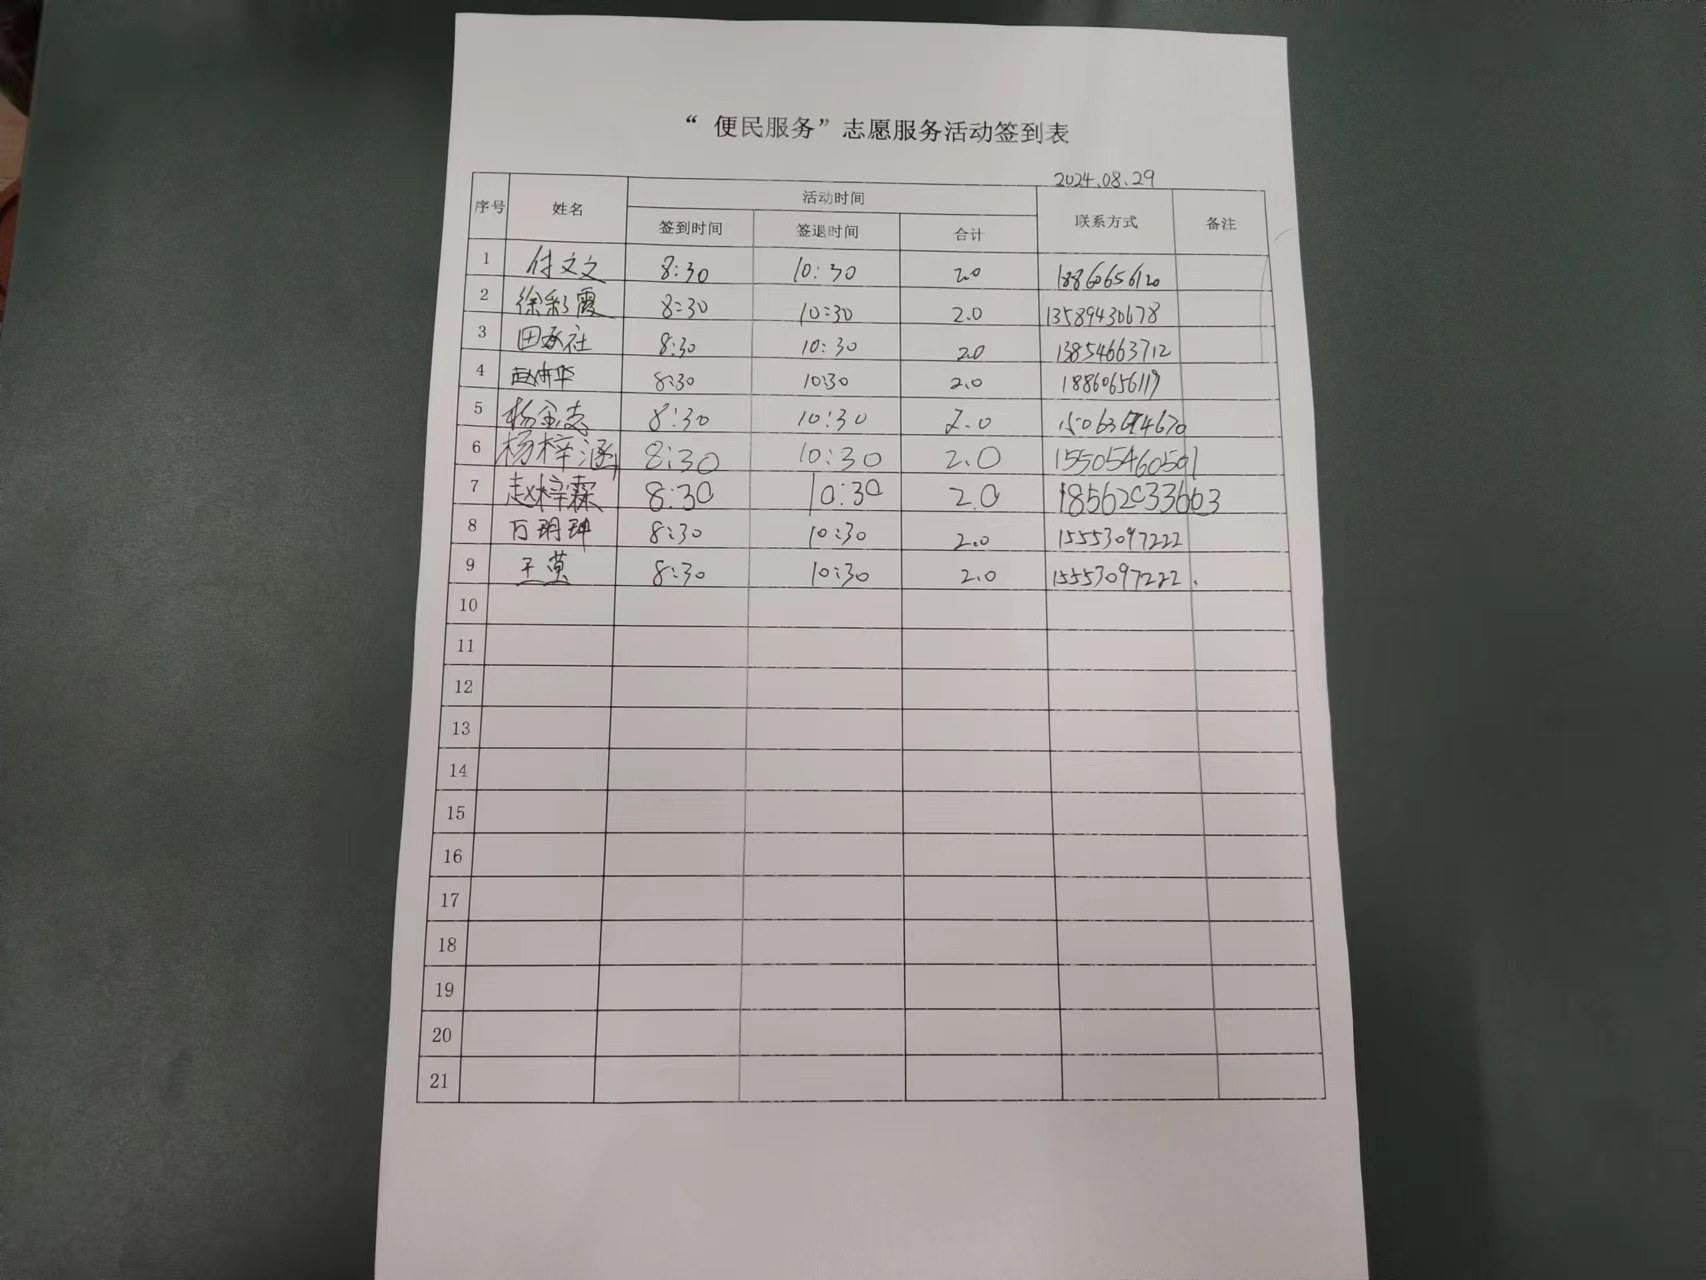 “ 便民服务”志愿服务活动签到表
2024.08.29
序号 姓名 活动时间 联系方式 备注
签到时间 签退时间 合计
1 付文文 8:30 10:30 2.0 18860656120
2 徐彩霞 8:30 10:30 2.0 13589430678
3 田承社 8:30 10:30 2.0 13854663712
4 8:30 10:30 2.0 18860656119
5 杨金志 8:30 10:30 2.0
6 杨梓涵 8:30 10:30 2.0 15505460591
7 赵梓霖 8:30 10:30 2.0 18562033603
8 万玥珅 8:30 10:30 2.0 15553097222
9 王萸 8:30 10:30 2.0 15553097222.
10
11
12
13
14
15
16
17
18
19
20
21